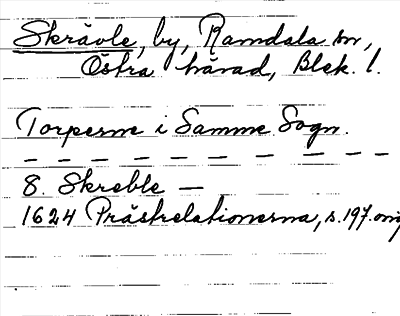 Skrävle, by, Ramdala sn,
Östra härad, Blek. l.
Torperne i Samme Sogn.
— — — — — — — — — —
8. Skreble —
1624 Prästrelationerna, s. 197. omg